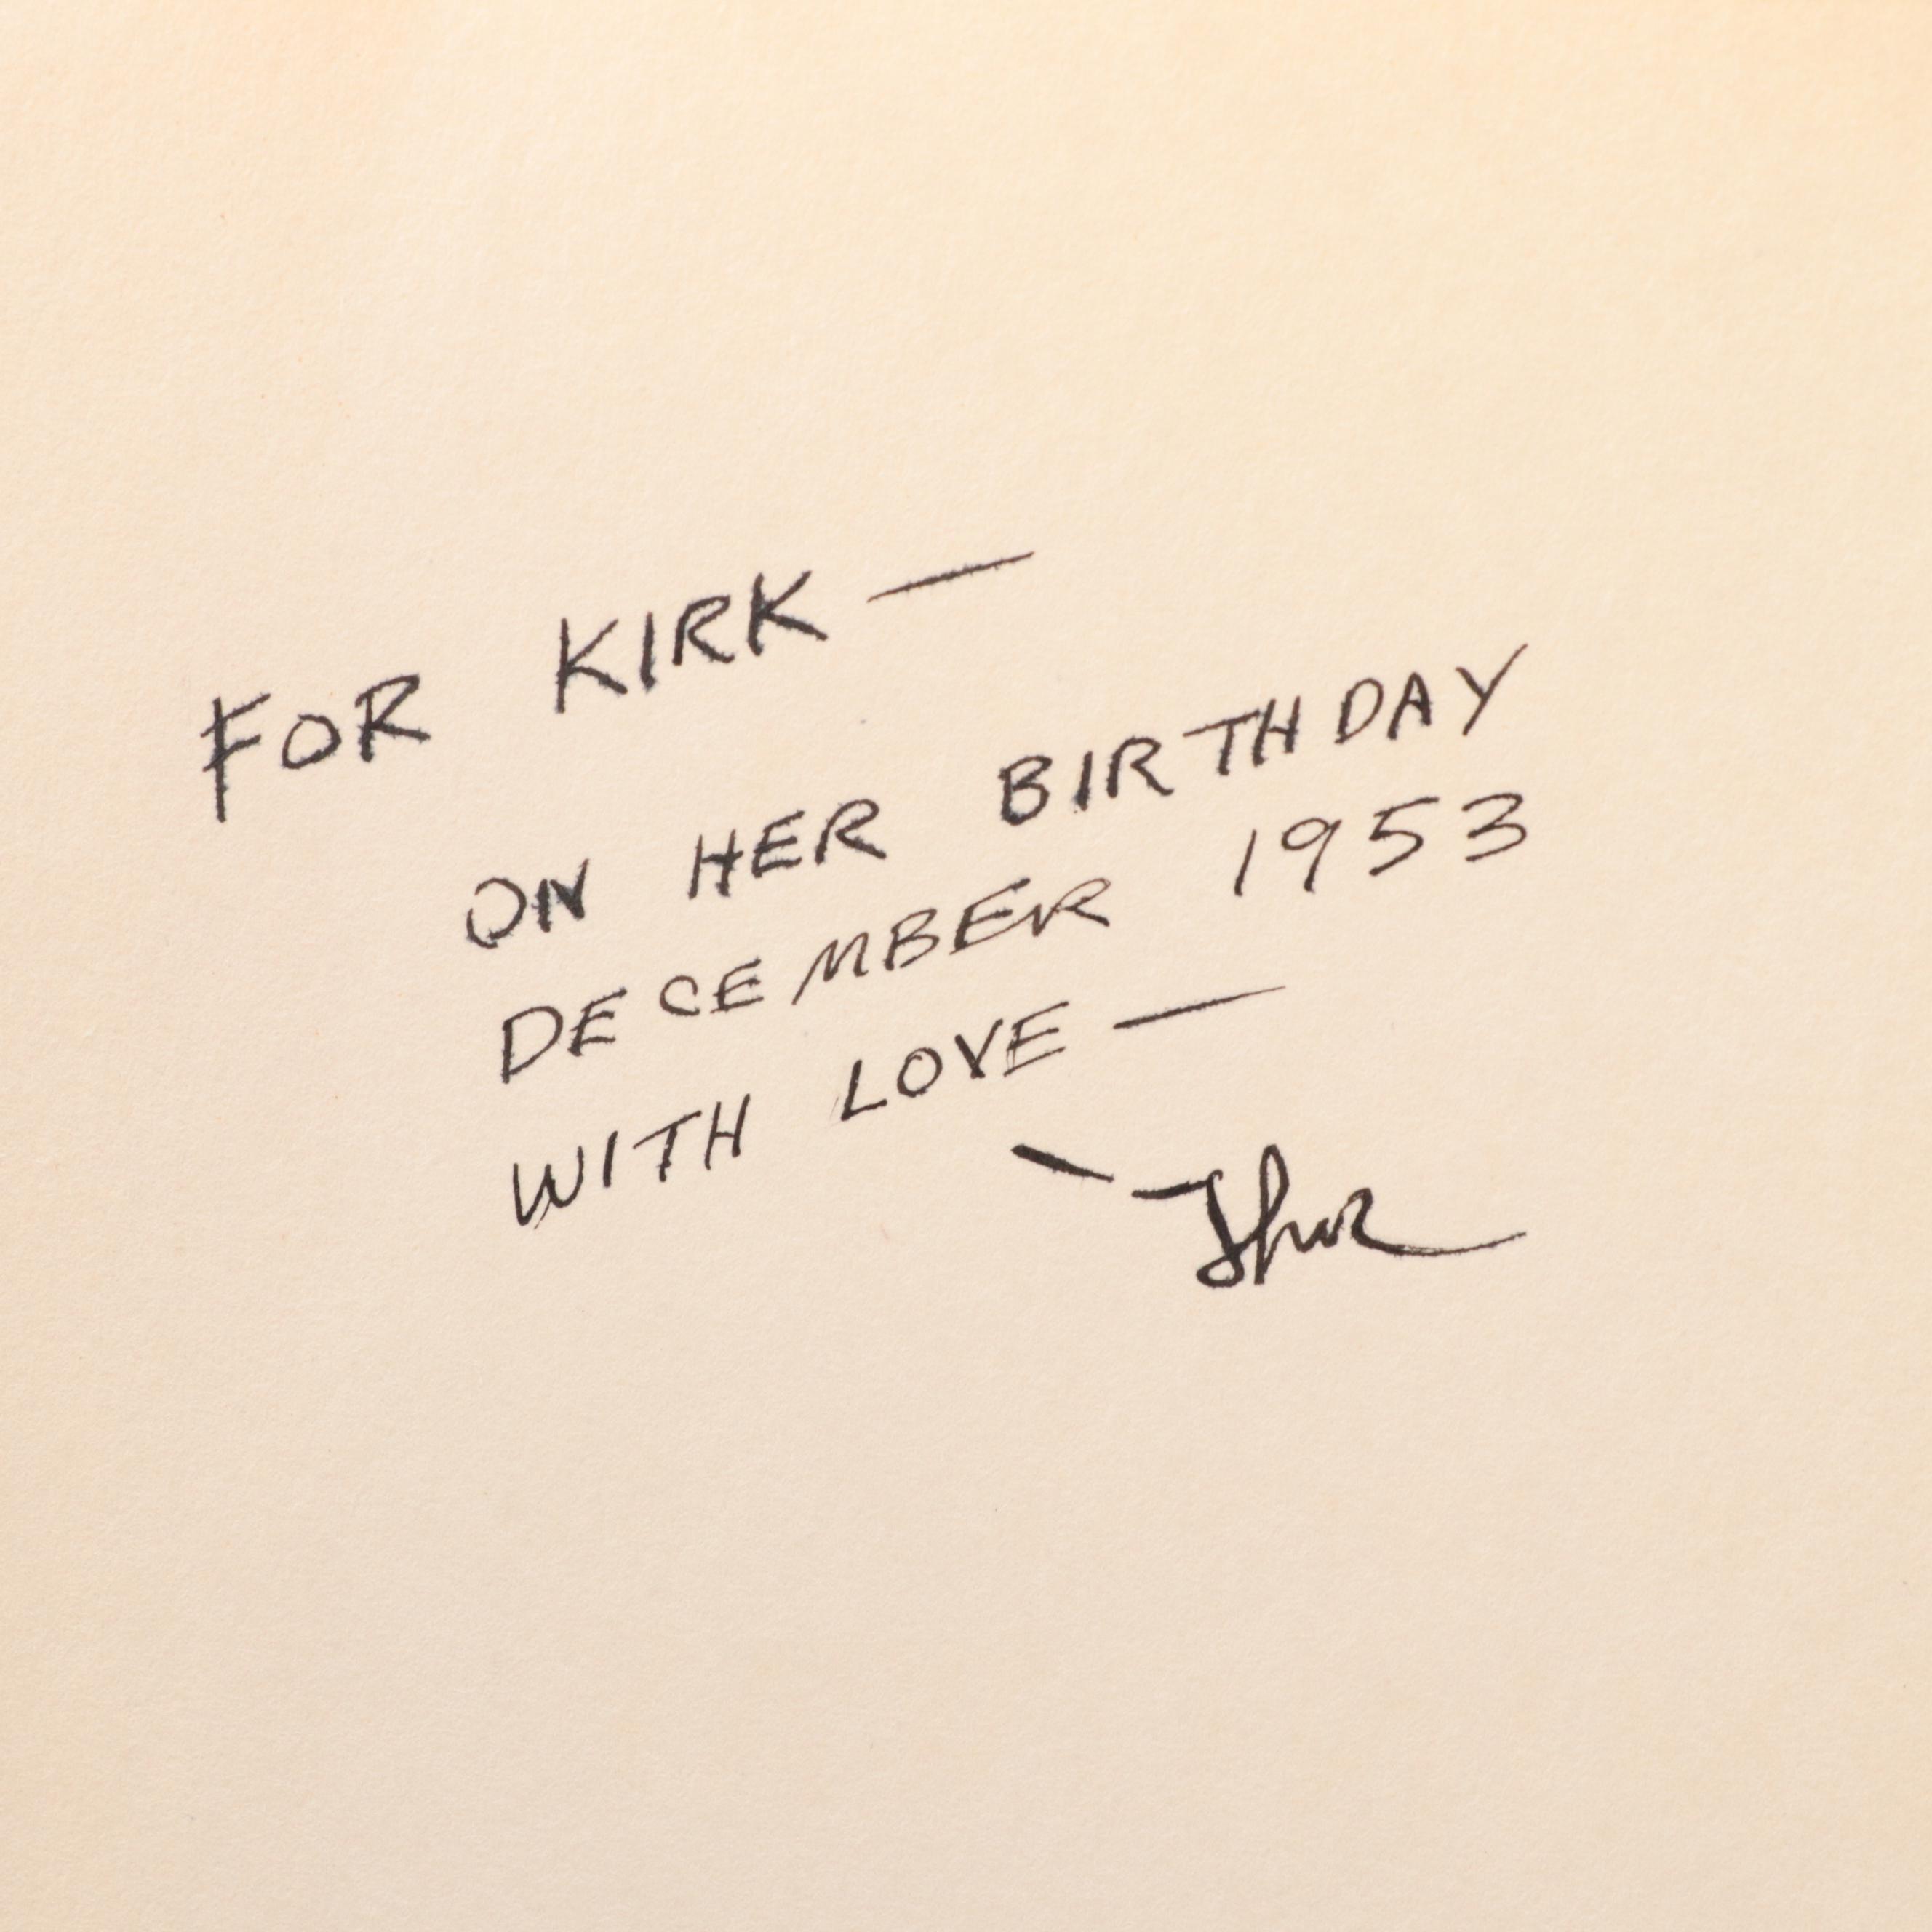 FOR KIRK —
ON HER BIRTHDAY
DECEMBER 1953
WITH LOVE —